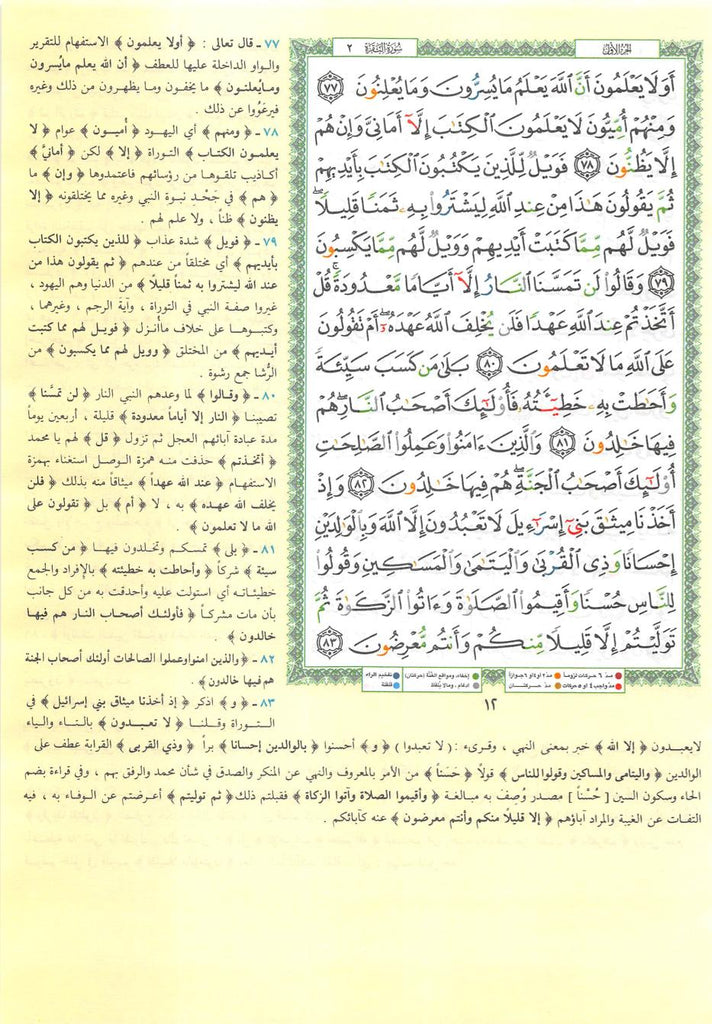 الجزء الأول
سورة البقرة ٢
أَوَلَا يَعْلَمُونَ أَنَّ ٱللَّهَ يَعْلَمُ مَا يُسِرُّونَ وَمَا يُعْلِنُونَ ٧٧
وَمِنْهُمْ أُمِّيُّونَ لَا يَعْلَمُونَ ٱلْكِتَٰبَ إِلَّآ أَمَانِىَّ وَإِنْ هُمْ
إِلَّا يَظُنُّونَ ٧٨ فَوَيْلٌ لِّلَّذِينَ يَكْتُبُونَ ٱلْكِتَٰبَ بِأَيْدِيهِمْ
ثُمَّ يَقُولُونَ هَٰذَا مِنْ عِندِ ٱللَّهِ لِيَشْتَرُوا۟ بِهِۦ ثَمَنًا قَلِيلًا ۖ
فَوَيْلٌ لَّهُم مِّمَّا كَتَبَتْ أَيْدِيهِمْ وَوَيْلٌ لَّهُم مِّمَّا يَكْسِبُونَ
٧٩ وَقَالُوا۟ لَن تَمَسَّنَا ٱلنَّارُ إِلَّآ أَيَّامًا مَّعْدُودَةً ۚ قُلْ
أَتَّخَذْتُمْ عِندَ ٱللَّهِ عَهْدًا فَلَن يُخْلِفَ ٱللَّهُ عَهْدَهُۥٓ ۖ أَمْ تَقُولُونَ
عَلَى ٱللَّهِ مَا لَا تَعْلَمُونَ ٨٠ بَلَىٰ مَن كَسَبَ سَيِّئَةً
وَأَحَٰطَتْ بِهِۦ خَطِيٓـَٔتُهُۥ فَأُو۟لَٰٓئِكَ أَصْحَٰبُ ٱلنَّارِ ۖ هُمْ
فِيهَا خَٰلِدُونَ ٨١ وَٱلَّذِينَ ءَامَنُوا۟ وَعَمِلُوا۟ ٱلصَّٰلِحَٰتِ
أُو۟لَٰٓئِكَ أَصْحَٰبُ ٱلْجَنَّةِ ۖ هُمْ فِيهَا خَٰلِدُونَ ٨٢ وَإِذْ
أَخَذْنَا مِيثَٰقَ بَنِىٓ إِسْرَٰٓءِيلَ لَا تَعْبُدُونَ إِلَّا ٱللَّهَ وَبِٱلْوَٰلِدَيْنِ
إِحْسَانًا وَذِى ٱلْقُرْبَىٰ وَٱلْيَتَٰمَىٰ وَٱلْمَسَٰكِينِ وَقُولُوا۟
لِلنَّاسِ حُسْنًا وَأَقِيمُوا۟ ٱلصَّلَوٰةَ وَءَاتُوا۟ ٱلزَّكَوٰةَ ثُمَّ
تَوَلَّيْتُمْ إِلَّا قَلِيلًا مِّنكُمْ وَأَنتُم مُّعْرِضُونَ ٨٣
مدّ ٦ حركات لزوماً مدّ ٢ او ٤ او ٦ جوازاً إخفاء، ومواقع الغُنَّة (حركتان) تفخيم الراء
مدّ واجب ٤ او ٥ حركات مدّ حركتان إدغام، ومالا يُلفَظ قلقلة
١٢
٧٧ ـ قال تعالى : ﴿ أولا يعلمون ﴾ الاستفهام للتقرير
والواو الداخلة عليها للعطف ﴿ أن الله يعلم مايُسرون
ومايُعلنون ﴾ ما يخفون وما يظهرون من ذلك وغيره
فيرعَوُوا عن ذلك .
٧٨ ـ ﴿ ومنهم ﴾ أي اليهود ﴿ أميون ﴾ عوام ﴿ لا
يعلمون الكتاب ﴾ التوراة ﴿ إلا ﴾ لكن ﴿ أمانيَّ ﴾
أكاذيب تلقوها من رؤسائهم فاعتمدوها ﴿ وإن ﴾ ما
﴿ هم ﴾ في جَحْدِ نبوة النبي وغيره مما يختلقونه ﴿ إلا
يظنون ﴾ ظناً ، ولا علم لهم .
٧٩ ـ ﴿ فويل ﴾ شدة عذاب ﴿ للذين يكتبون الكتاب
بأيديهم ﴾ أي مختلقاً من عندهم ﴿ ثم يقولون هذا من
عند الله ليشتروا به ثمناً قليلاً ﴾ من الدنيا وهم اليهود ،
غيروا صفة النبي في التوراة ، وآية الرجم ، وغيرهما ،
وكتبوها على خلاف ماأنزل ﴿ فويل لهم مما كتبت
أيديهم ﴾ من المختلق ﴿ وويل لهم مما يكسبون ﴾ من
الرُّشا جمع رشوة .
٨٠ ـ ﴿ وقالوا ﴾ لما وعدهم النبي النار ﴿ لن تمسَّنا ﴾
تصيبنا ﴿ النار إلا أياماً معدودة ﴾ قليلة ، أربعين يوماً
مدة عبادة آبائهم العجل ثم تزول ﴿ قل ﴾ لهم يا محمد
﴿ أتخذتم ﴾ حذفت منه همزة الوصل استغناء بهمزة
الاستفهام ﴿ عند الله عهداً ﴾ ميثاقاً منه بذلك ﴿ فلن
يخلف الله عهده ﴾ به ، لا ﴿ أم ﴾ بل ﴿ تقولون على
الله ما لا تعلمون ﴾ .
٨١ ـ ﴿ بلى ﴾ تمسكم وتخلدون فيها ﴿ من كسب
سيئة ﴾ شركاً ﴿ وأحاطت به خطيئته ﴾ بالإفراد والجمع
خطيئاته أي استولت عليه وأحدقت به من كل جانب
بأن مات مشركاً ﴿ فأولئك أصحاب النار هم فيها
خالدون ﴾ .
٨٢ ـ ﴿ والذين امنواوعملوا الصالحات أولئك أصحاب الجنة
هم فيها خالدون ﴾ .
٨٣ ـ ﴿ و ﴾ اذكر ﴿ إذ أخذنا ميثاق بني إسرائيل ﴾ في
التوراة وقلنا ﴿ لا تعبدون ﴾ بالتاء والياء
لايعبدون ﴿ إلا الله ﴾ خبر بمعنى النهي ، وقرىء : ( لا تعبدوا ) ﴿ و ﴾ أحسنوا ﴿ بالوالدين إحسانا ﴾ براً ﴿ وذي القربى ﴾ القرابة عطف على
الوالدين ﴿ واليتامى والمساكين وقولوا للناس ﴾ قولاً ﴿ حَسَناً ﴾ من الأمر بالمعروف والنهي عن المنكر والصدق في شأن محمد والرفق بهم ، وفي قراءة بضم
الحاء وسكون السين [ حُسْناً ] مصدر وُصِفَ به مبالغة ﴿ وأقيموا الصلاة وآتوا الزكاة ﴾ فقبلتم ذلك ﴿ ثم توليتم ﴾ أعرضتم عن الوفاء به ، فيه
التفات عن الغيبة والمراد آباؤهم ﴿ إلا قليلًا منكم وأنتم معرضون ﴾ عنه كآبائكم .